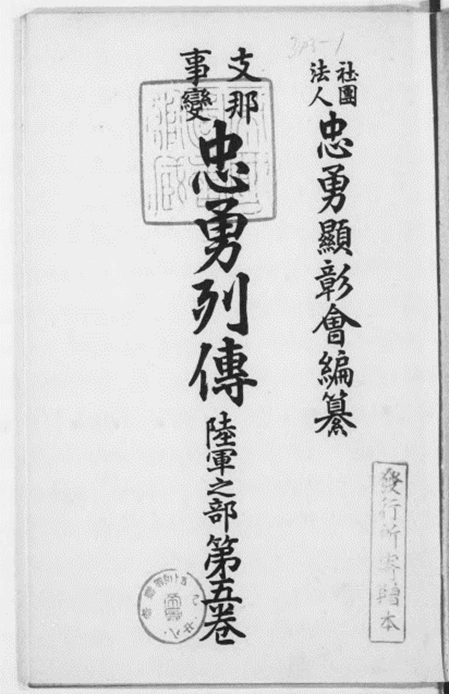 社團法人 忠勇顯彰會編纂
支那事變 忠勇列傳 陸軍之部 第五卷
發行所寄贈本